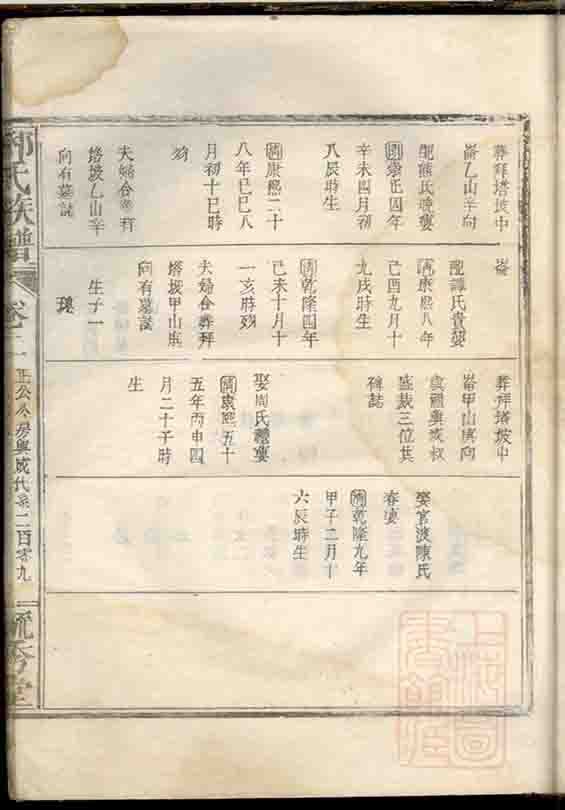 葬拜塔坡中
崙乙山辛向
配熊氏晚妻
明崇正四年
辛未四月初
八辰時生
清康熙二十
八年己巳八
月初十巳時
歿
夫婦合葬拜
塔坡乙山辛
向有墓誌
崙
配譚氏貴妻
清康熙八年
己酉九月十
九戌時生
清乾隆四年
己未十月十
一亥時歿
夫婦合葬拜
塔坡甲山庚
向有墓誌
生子一
葬拜塔坡中
崙甲山庚向
與禮與成叔
盛裁三位共
碑誌
娶周氏
清康熙五十
五年丙申四
月二十子時
生
娶官渡陳氏
春妻
清乾隆九年
甲子二月十
六辰時生
氏族譜
卷二
正公房與成代系二百零九
毓秀堂
上海圖
書館藏